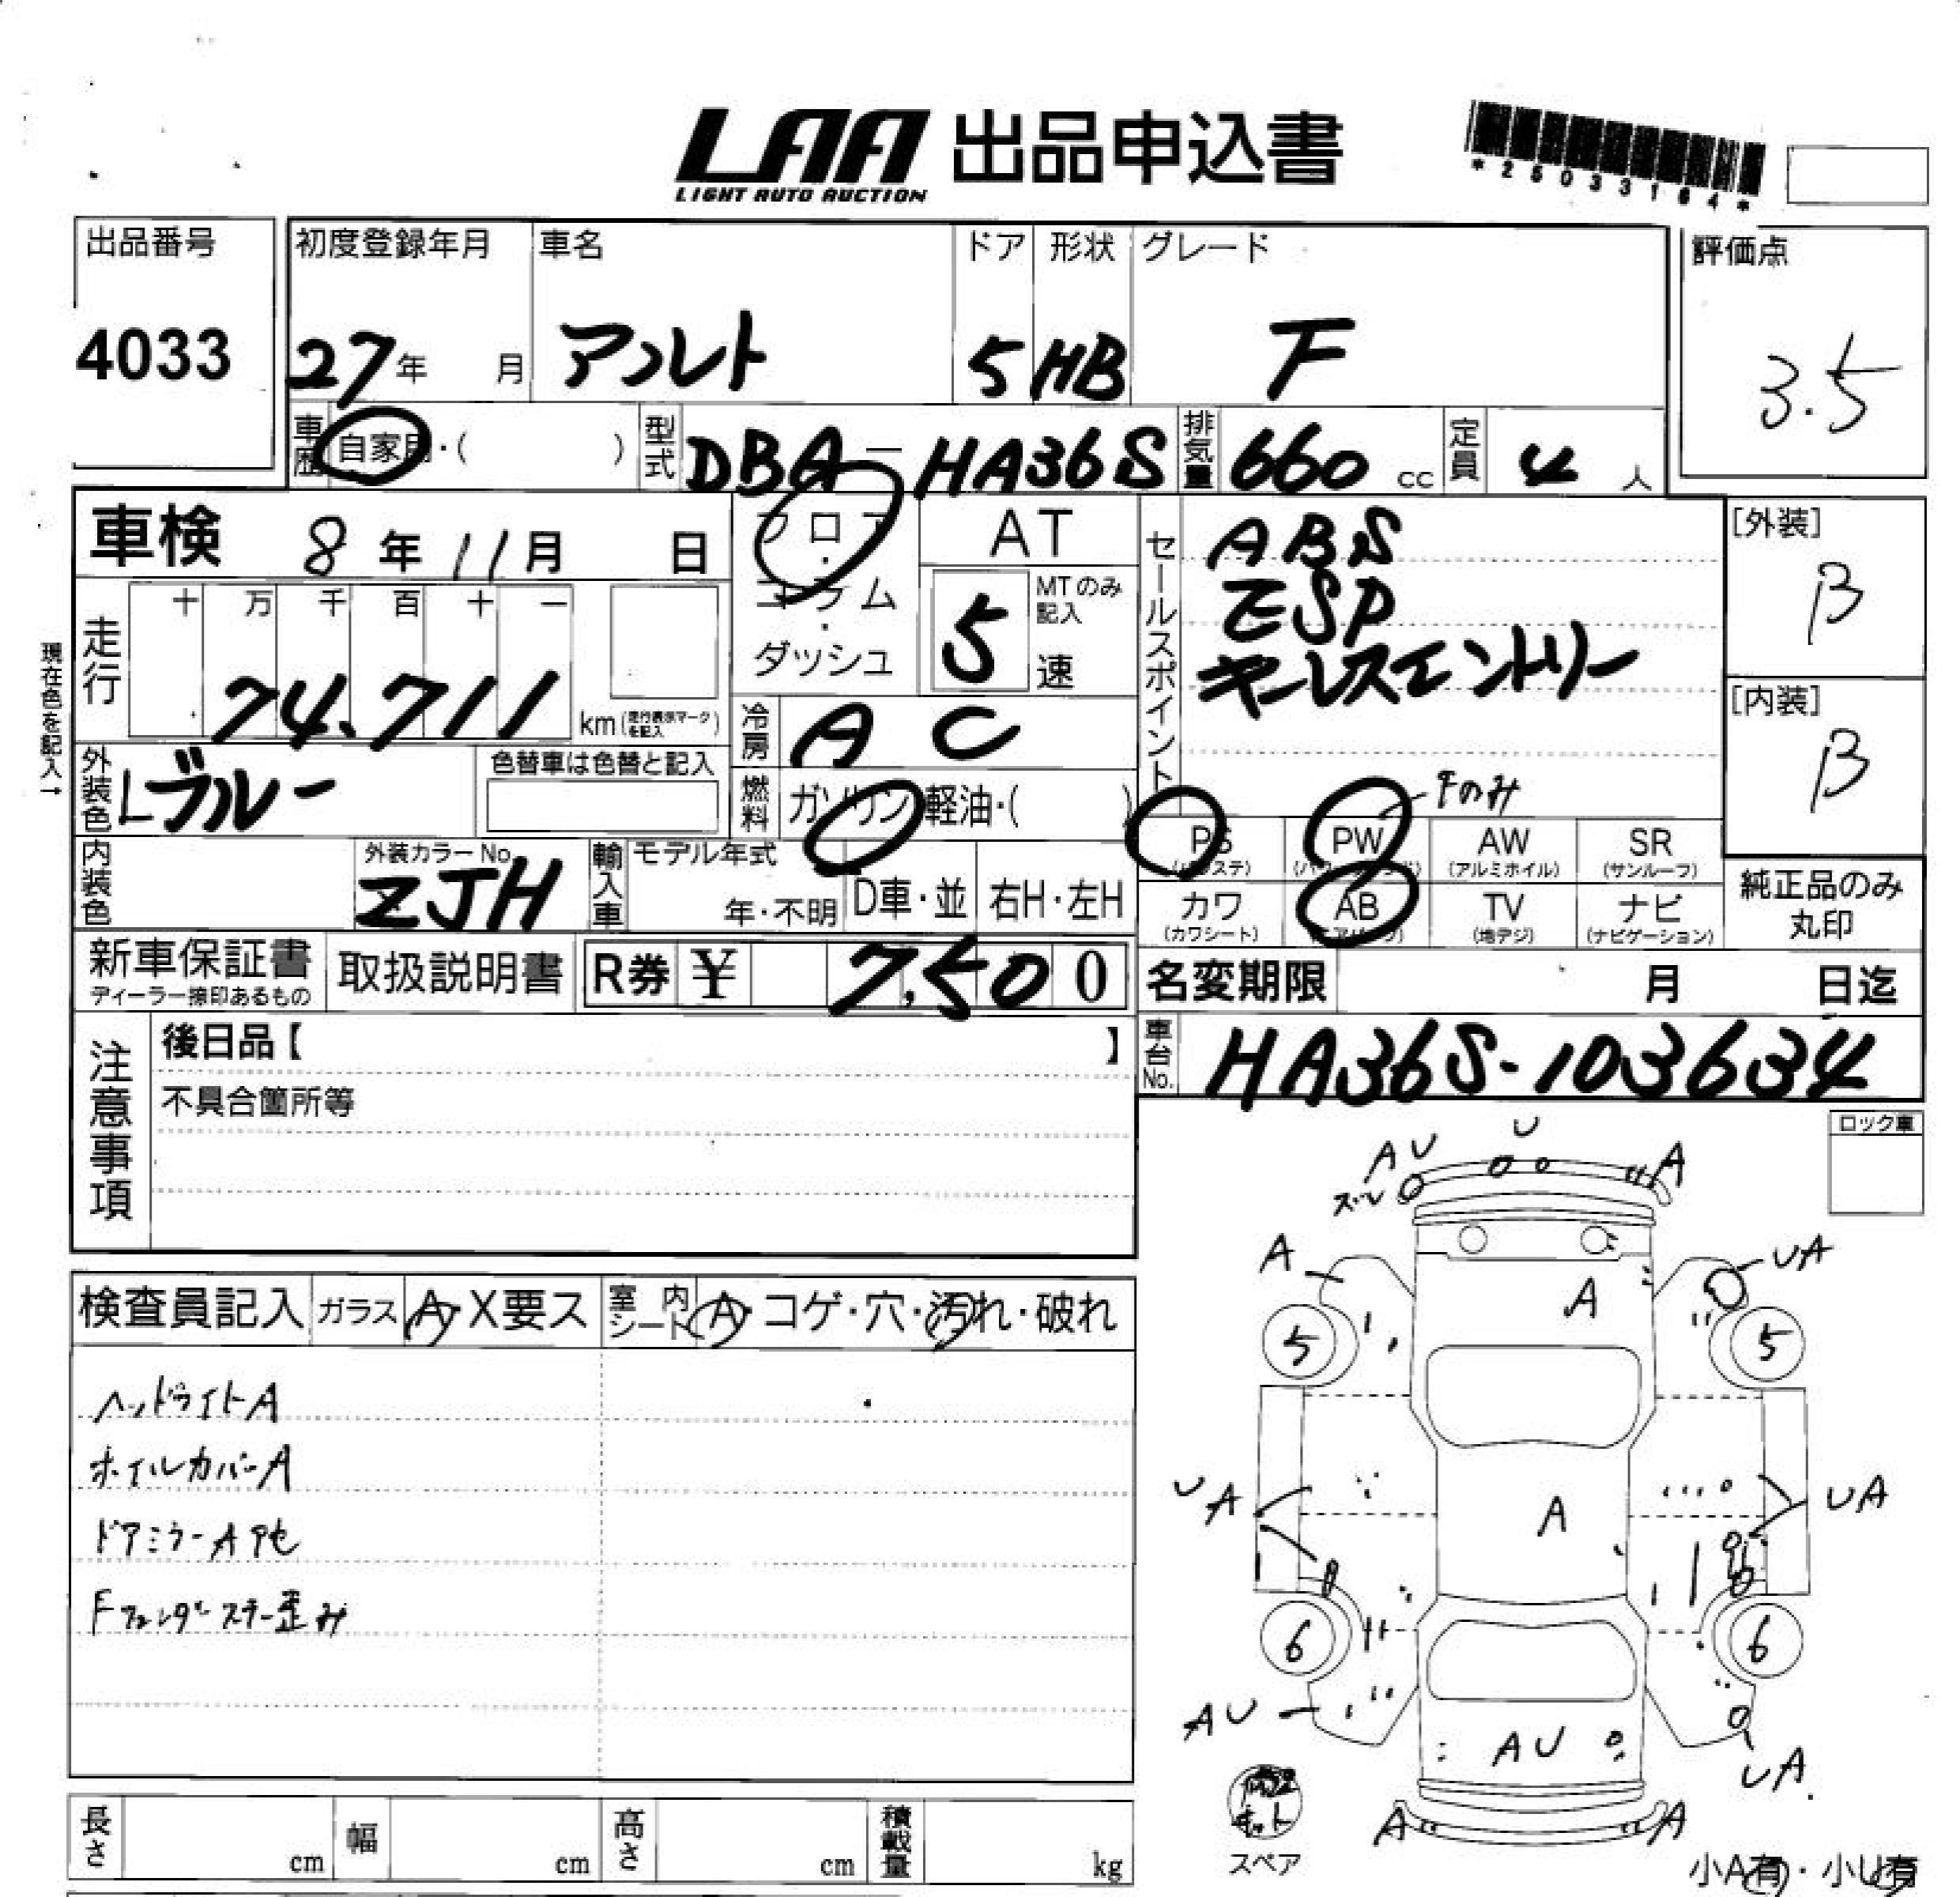 LAA 出品申込書
LIGHT AUTO AUCTION
*25033164*
出品番号
4033
初度登録年月
27年 月
車名
アルト
ドア
5
形状
HB
グレード
F
評価点
3.5
車歴 自家用・( )
型式 DBA-HA36S
排気量 660 cc
定員 4 人
車検 8年11月 日
フロア・コラム・ダッシュ
AT
5速 MTのみ記入
セールスポイント
ABS
ESP
キーレスエントリー
[外装]
B
[内装]
B
現在色を記入→
走行 十 万 千 百 十 一
74,711 km(走行表示マークを記入)
冷房 AC
外装色 Lブルー
色替車は色替と記入
燃料 ガソリン 軽油・( )
Fのみ
PS (パワステ)
PW
AW (アルミホイル)
SR (サンルーフ)
内装色
外装カラーNo.
ZJH
輸入車 モデル年式
年・不明
D車・並
右H・左H
カワ (カワシート)
AB (エアバッグ)
TV (地デジ)
ナビ (ナビゲーション)
純正品のみ丸印
新車保証書
ディーラー捺印あるもの
取扱説明書
R券 ¥ 7,500
名変期限 月 日迄
注意事項
後日品【 】
不具合箇所等
車台No. HA36S-103634
ロック車
検査員記入
ガラス A・X要ス
室内シート A・コゲ・穴・汚れ・破れ
ヘッドライトA
ホイルカバーA
ドアミラーA
Fフェンダーステー歪み
U
AU
ズレ
A
A
UA
A
5
5
UA
A
UA
6
6
AU
AU
UA
A
A
キット
スペア
小A有・小U有
長さ cm
幅 cm
高さ cm
積載量 kg